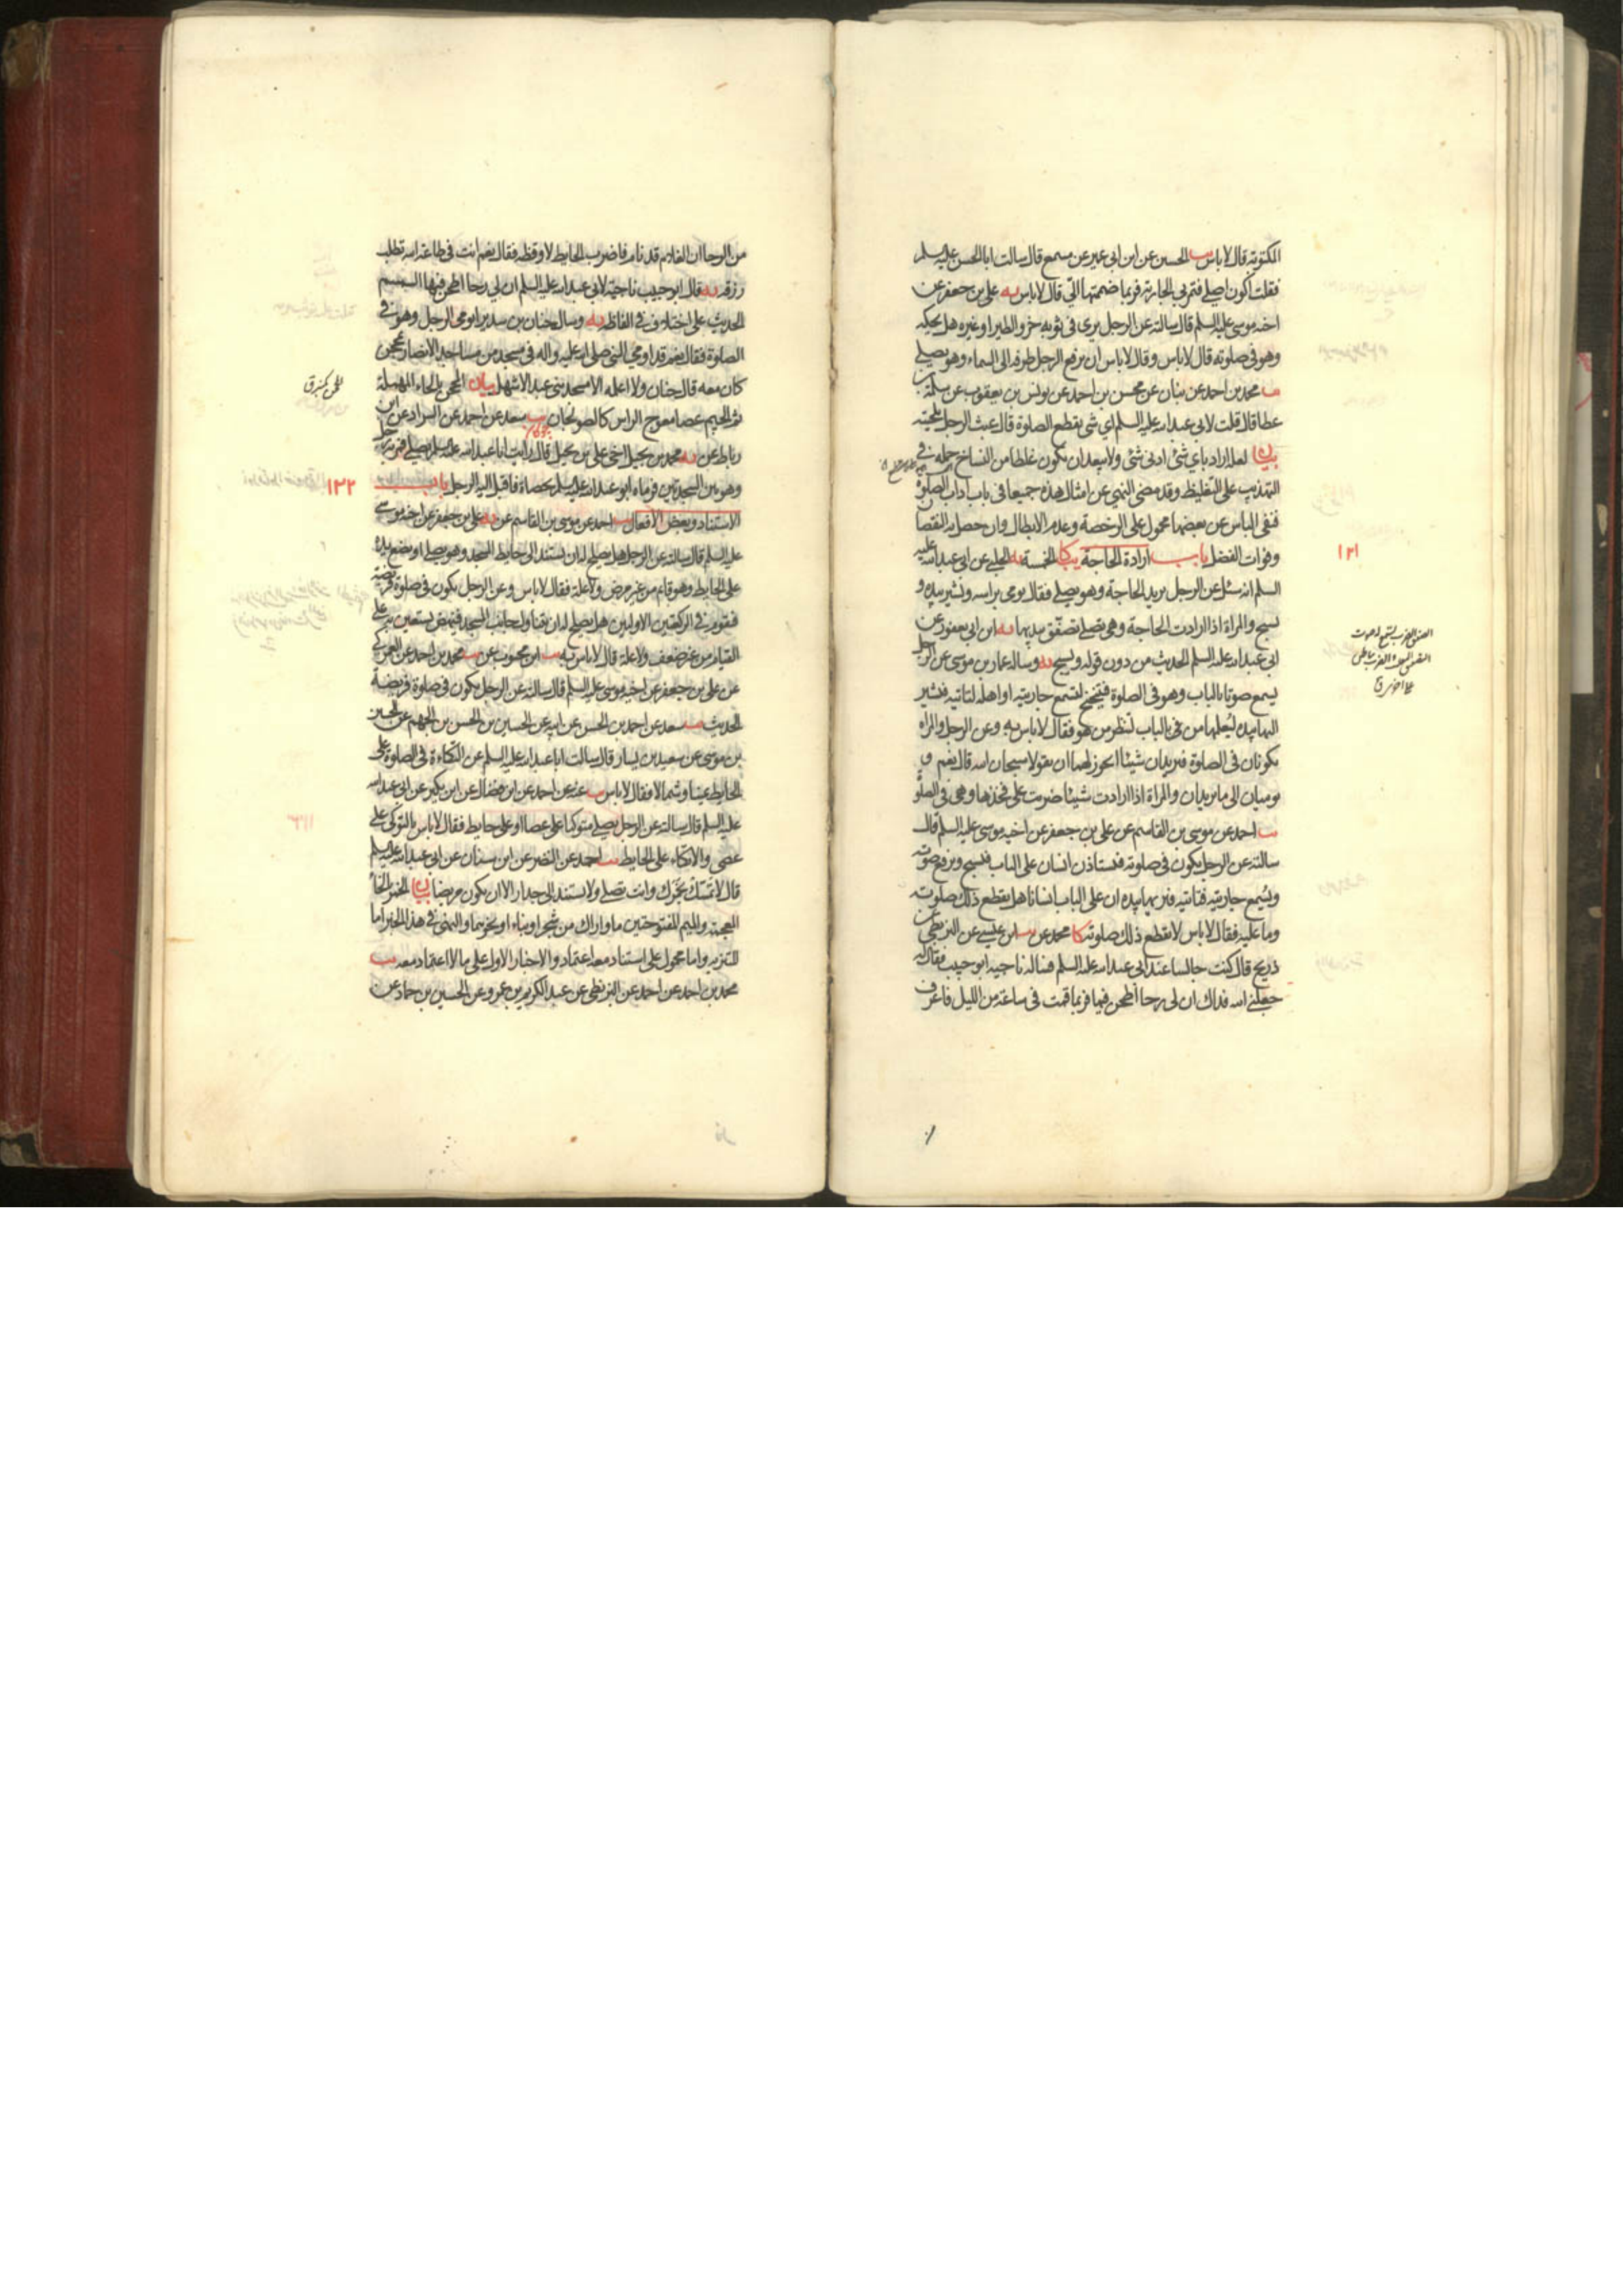 المكتوبة قال لا باس يب الحسين عن ابن ابي عمير عن مسمع قال سالت ابا الحسن عليه السلم
فقلت اكون اصلي فتمر بي الجارية فربما ضممتها الي قال لا باس يه علي بن جعفر عن
اخيه موسى عليه السلم قال سالته عن الرجل يرى في ثوبه خرؤ الطير او غيره هل يحكه
وهو في صلوته قال لا باس وقال لا باس ان يرفع الرجل طرفه الى السماء وهو يصلي
يب محمد بن احمد عن بنان عن محسن بن احمد عن يونس بن يعقوب عن سلمة بن
عطا قال قلت لابي عبد الله عليه السلم اي شئ يقطع الصلوة قال عبث الرجل بلحيته
بيان لعله اراد باي شئ ادنى شئ ولا يبعد ان يكون غلطا من النساخ حمله في
التهذيب على التغليظ وقد مضى النهي عن امثال هذه جميعا في باب اداب الصلوة
فنفى الباس عن بعضها محمول على الرخصة وعدم الابطال وان حصل به النقصا
وفوات الفضل باب ارادة الحاجة يب كا الخمسة يه الحلبي عن ابي عبد الله عليه
١٢١
السلم انه سئل عن الرجل يريد الحاجة وهو يصلي فقال يومي براسه ويشير بيده و
يسبح والمراة اذا ارادت الحاجة وهي تصلي تصفق بيديها يه ابن ابي يعفور عن
ابي عبد الله عليه السلم الحديث من دون قوله ويسبح يه وساله عمار بن موسى عن الرجل
يسمع صوتا بالباب وهو في الصلوة فيتنحنح لتسمع جاريته او اهله لتاتيه فيشير
اليها بيده ليعلمها من في الباب لتنظر من هو فقال لا باس به وعن الرجل والمراه
يكونان في الصلوة فيريدان شيئا ايجوز لهما ان يقولا سبحان الله قال نعم و
يوميان الى ما يريدان والمراة اذا ارادت شيئا ضربت على فخذها وهي في الصلو
يب احمد عن موسى بن القاسم عن علي بن جعفر عن اخيه موسى عليه السلم قال
سالته عن الرجل يكون في صلوته فيستاذن انسان على الباب فيسبح ويرفع صوته
ويسمع جاريته فتاتيه فيريها بيده ان على الباب انسانا هل يقطع ذلك صلوته
وما عليه فقال لا باس لا يقطع ذلك صلوته كا محمد عن يب ابن عيسى عن البزنطي عن
ذريح قال كنت جالسا عند ابي عبد الله عليه السلم فساله ناجيه ابو حبيب فقال له
جعلني الله فداك ان لي رحا اطحن فيها فربما قمت في ساعة من الليل فاعرف
من الرحا ان الغلام قد نام فاضرب الحايط لاوقظه فقال نعم انت في طاعة الله تطلب
رزقه يه قال ابو حبيب ناجية لابي عبد الله عليه السلم ان لي رحا اطحن فيها السمسم
الحديث على اختلاف في الفاظه يه وساله حنان بن سدير ايومي الرجل وهو في
الصلوة فقال نعم قد اومي النبي صلى الله عليه واله في مسجد من مساجد الانصار بمحجن
كان معه قال حنان ولا اعلمه الا مسجد بني عبد الاشهل بيان المحجن بالحاء المهملة
ثم الجيم عصا معوج الراس كالصولجان يب سعد عن احمد عن السراد عن ابن
رباط عن يه محمد بن بجيل اخي علي بن بجيل قال رايت ابا عبد الله عليه السلم يصلي فمر به رجل
وهو بين السجدتين فرماه ابو عبد الله عليه السلم بحصاة فاقبل اليه الرجل باب
١٢٢
الاستناد وبعض الافعال يب احمد عن موسى بن القاسم عن يه علي بن جعفر عن اخيه موسى
عليه السلم قال سالته عن الرجل هل يصلح له ان يستند الى حايط المسجد وهو يصلي او يضع يده
على الحايط وهو قائم من غير مرض ولا علة فقال لا باس وعن الرجل يكون في صلوة فريضة
فيقوم في الركعتين الاوليين هل يصلح له ان يتناول جانب المسجد فينهض يستعين به على
القيام من غير ضعف ولا علة قال لا باس به يب ابن محبوب عن يب محمد بن احمد عن العمركي
عن علي بن جعفر عن اخيه موسى عليه السلم قال سالته عن الرجل يكون في صلوة فريضة
الحديث يب سعد عن احمد بن الحسن عن ابيه عن الحسين بن الحسن بن الجهم عن الحسين
بن موسى عن سعيد بن يسار قال سالت ابا عبد الله عليه السلم عن التكاءة في الصلوة على
الحايط يمينا وشمالا فقال لا باس يب عنه عن احمد عن ابن فضال عن ابن بكير عن ابي عبد الله
عليه السلم قال سالته عن الرجل يصلي متوكيا على عصا او على حايط فقال لا باس بالتوكي على
عصى والاتكاء على الحايط يب احمد عن النضر عن ابن سنان عن ابي عبد الله عليه السلم
قال لا تمسك بخمرك وانت تصلي ولا تستند الى جدار الا ان يكون مريضا بيان الخمر بالخا
المعجمة والميم المفتوحتين ما واراك من شجر او بناء او نحوهما والنهي في هذا الخبر اما
للتنزيه واما محمول على استناد معه اعتماد والاخبار الاول على ما لا اعتماد معه يب
محمد بن احمد عن احمد عن البزنطي عن عبد الكريم بن عمرو عن الحسين بن حماد عن